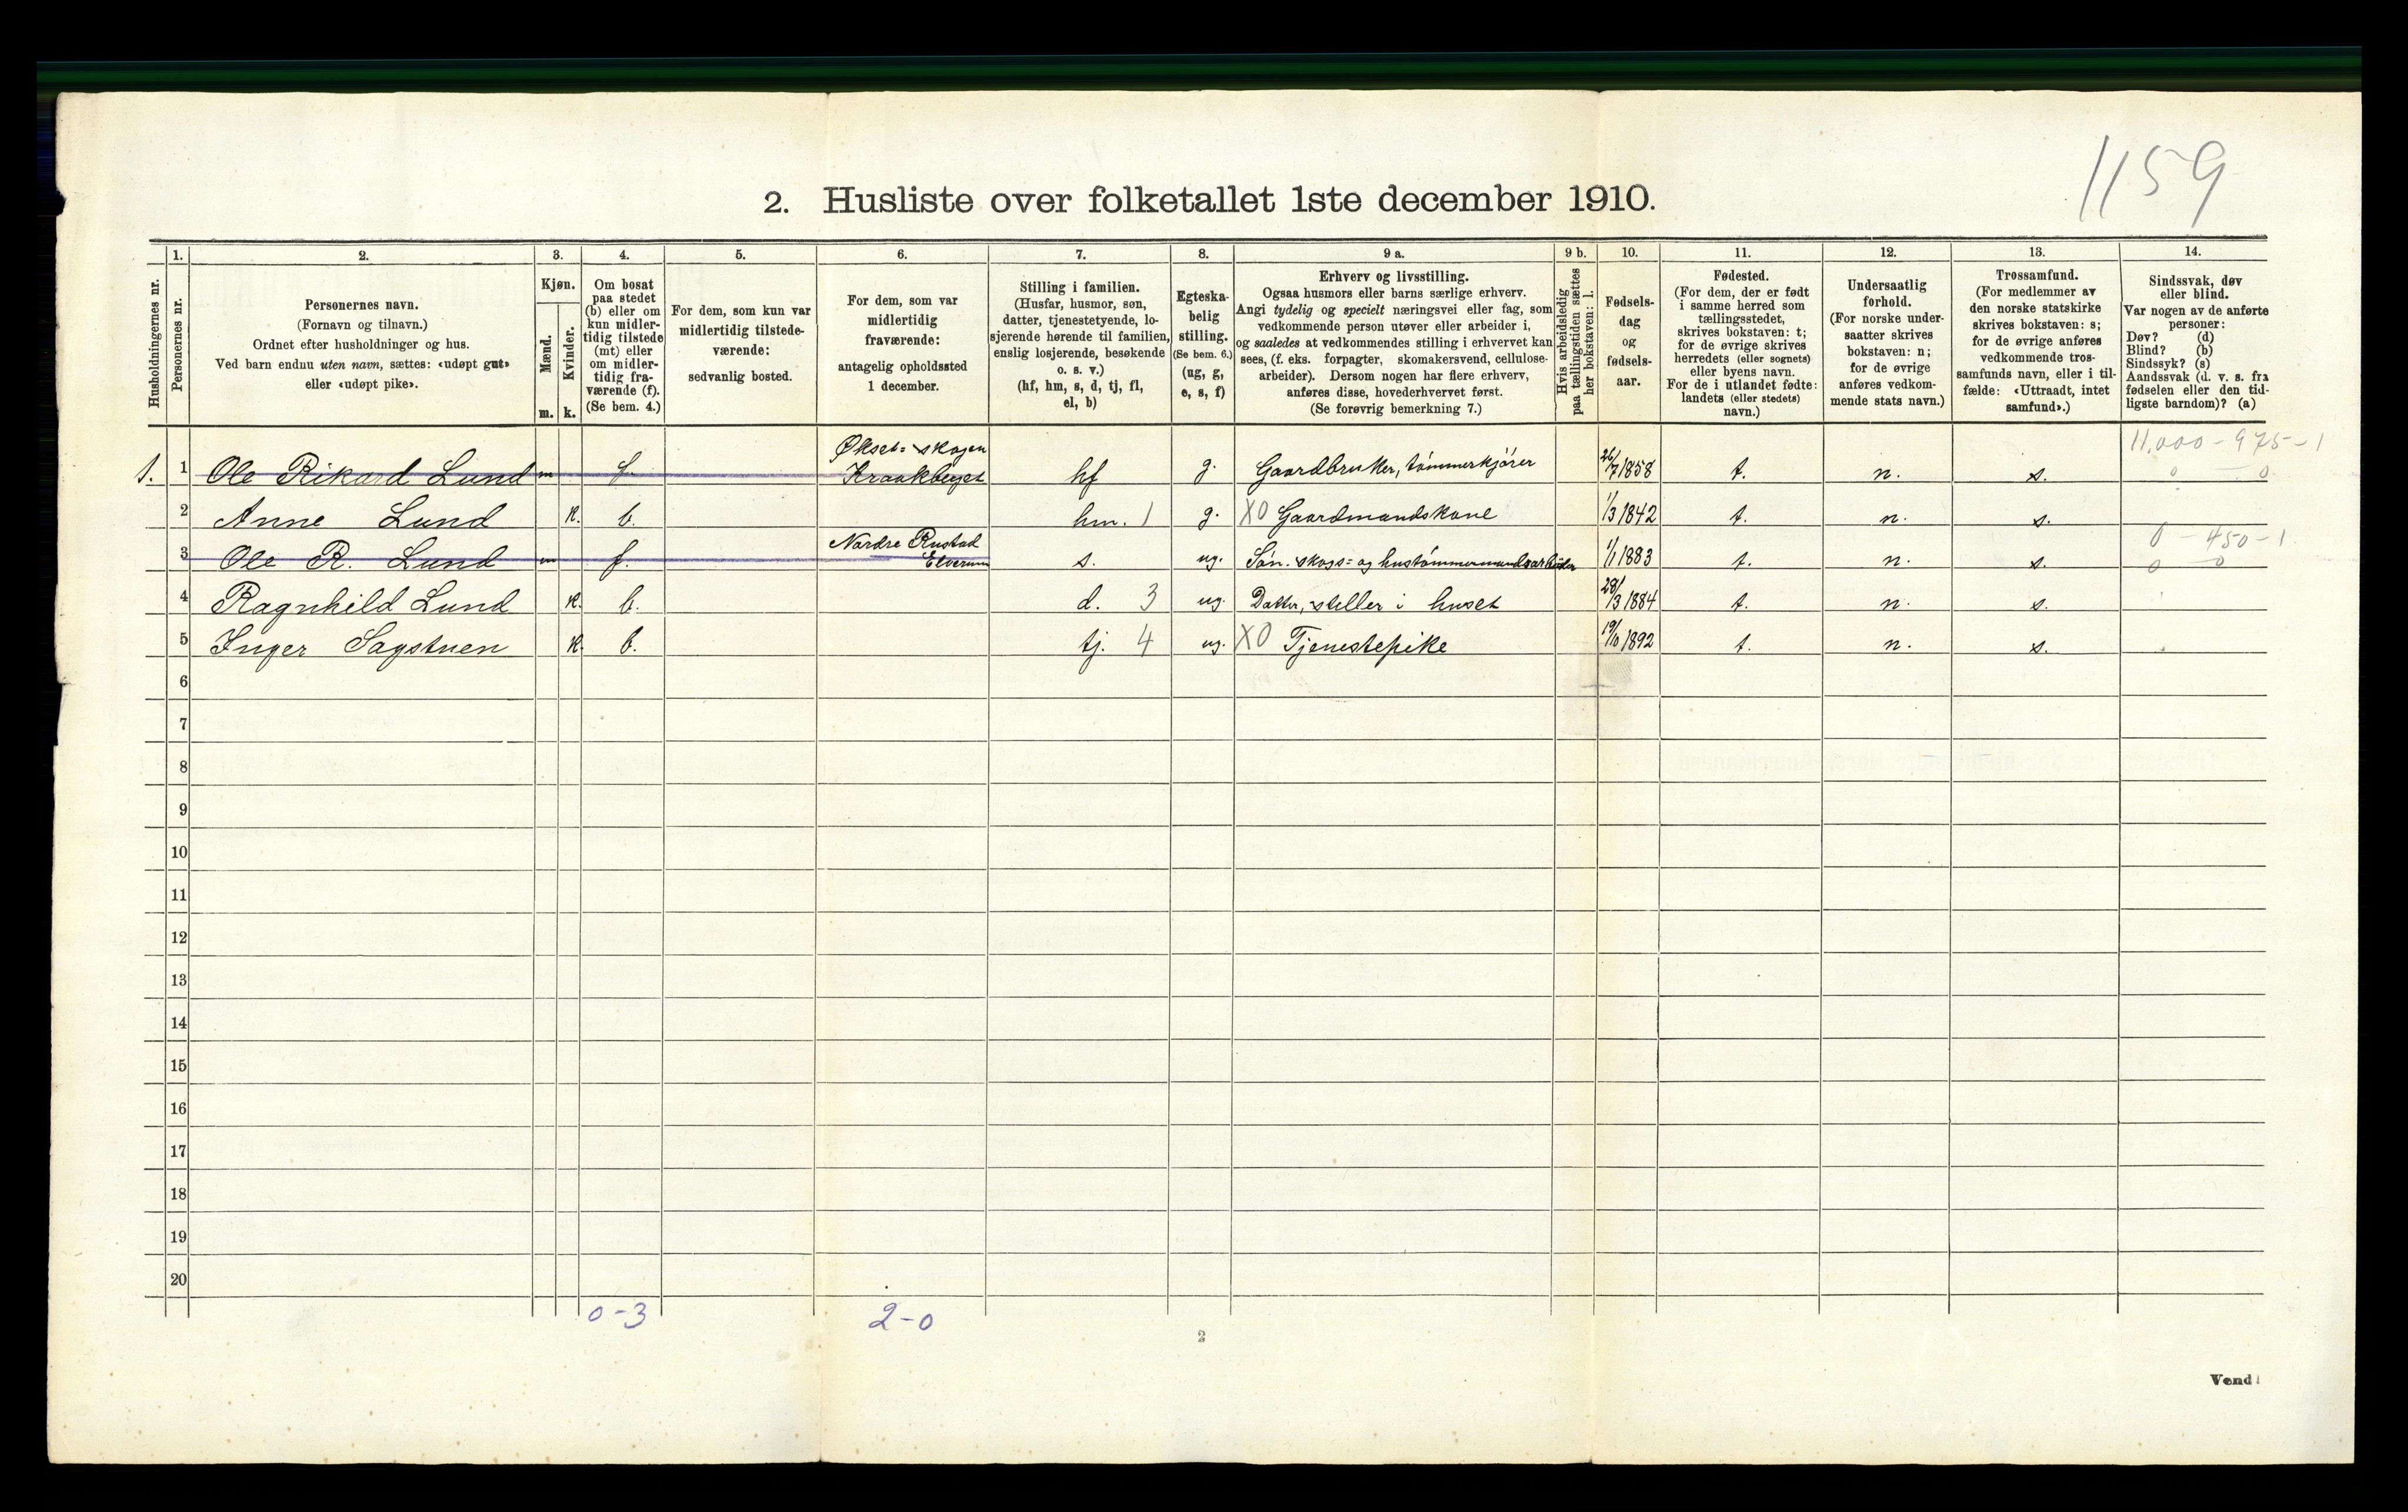 1159
2. Husliste over folketallet 1ste december 1910.
1. 2. 3. 4. 5. 6. 7. 8. 9 a. 9 b. 10. 11. 12. 13. 14.
Husholdningernes nr.
Personernes nr.
Personernes navn.
(Fornavn og tilnavn.)
Ordnet efter husholdninger og hus.
Ved barn endnu uten navn, sættes: «udøpt gut»
eller «udøpt pike».
Kjøn.
Mænd.
m.
Kvinder.
k.
Om bosat
paa stedet
(b) eller om
kun midler-
tidig tilstede
(mt) eller
om midler-
tidig fra-
værende (f).
(Se bem. 4.)
For dem, som kun var
midlertidig tilstede-
værende:
sedvanlig bosted.
For dem, som var
midlertidig
fraværende:
antagelig opholdssted
1 december.
Stilling i familien.
(Husfar, husmor, søn,
datter, tjenestetyende, lo-
sjerende hørende til familien,
enslig losjerende, besøkende
o. s. v.)
(hf, hm, s, d, tj, fl,
el, b)
Egteska-
belig
stilling.
(Se bem. 6.)
(ug, g,
e, s, f)
Erhverv og livsstilling.
Ogsaa husmors eller barns særlige erhverv.
Angi tydelig og specielt næringsvei eller fag, som
vedkommende person utøver eller arbeider i,
og saaledes at vedkommendes stilling i erhvervet kan
sees, (f. eks. forpagter, skomakersvend, cellulose-
arbeider). Dersom nogen har flere erhverv,
anføres disse, hovederhvervet først.
(Se forøvrig bemerkning 7.)
Hvis arbeidsledig
paa tællingstiden sættes
her bokstaven: l.
Fødsels-
dag
og
fødsels-
aar.
Fødested.
(For dem, der er født
i samme herred som
tællingsstedet,
skrives bokstaven: t;
for de øvrige skrives
herredets (eller sognets)
eller byens navn.
For de i utlandet fødte:
landets (eller stedets)
navn.)
Undersaatlig
forhold.
(For norske under-
saatter skrives
bokstaven: n;
for de øvrige
anføres vedkom-
mende stats navn.)
Trossamfund.
(For medlemmer av
den norske statskirke
skrives bokstaven: s;
for de øvrige anføres
vedkommende tros-
samfunds navn, eller i til-
fælde: «Uttraadt, intet
samfund».)
Sindssvak, døv
eller blind.
Var nogen av de anførte
personer:
Døv? (d)
Blind? (b)
Sindssyk? (s)
Aandssvak (d. v. s. fra
fødselen eller den tid-
ligste barndom)? (a)
Økset= skogen 11.000 - 975 - 1
1. 1 Ole Rikard Lund m f. Kraakberget hf g. Gaardbruker, tømmerkjører 26/7 1858 t. n. s. 0 0
2 Anne Lund k. b. hm. 1 g. X0 Gaardmandskone 1/3 1842 t. n. s.
Nordre Rustad 0 - 450 - 1.
3 Ole R. Lund m f. Elverum s. ug. Søn. skogs= og hustømmermandsarbeider 1/1 1883 t. n. s. 0 0
4 Ragnhild Lund k. b. d. 3 ug. Datter, steller i huset 28/3 1884 t. n. s.
5 Inger Sagstuen k. b. tj. 4 ug. X0 Tjenestepike 19/10 1892 t. n. s.
6
7
8
9
10
11
12
13
14
15
16
17
18
19
20
0-3 2-0
2
Vend!